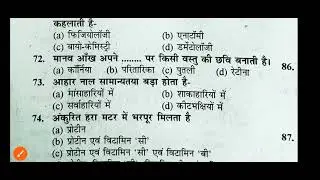 कहलाता है-
(a) फिजियोलॉजी (b) एनाटॉमी
(c) बायो-केमिस्ट्री (d) डर्मेटोलॉजी
72. मानव आँख अपने ........ पर किसी वस्तु की छवि बनाती है।
(a) कॉर्निया (b) परितारिका (c) पुतली (d) रेटीना
73. आहार नाल सामान्यतया बड़ा होता है-
(a) मांसाहारियों में (b) शाकाहारियों में
(c) सर्वाहारियों में (d) कीटभक्षियों में
74. अंकुरित हरा मटर में भरपूर मिलता है
(a) प्रोटीन
(b) प्रोटीन एवं विटामिन 'सी'
(c) प्रोटीन विटामिन 'सी' एवं विटामिन 'बी'
86.
87.